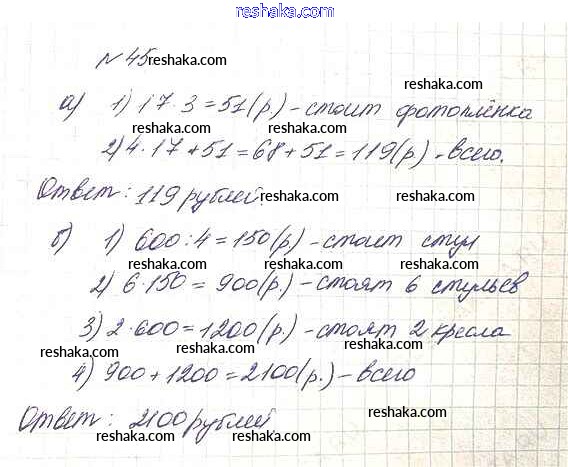 www.reshaka.com
№ 45 reshaka.com
reshaka.com
а) 1) 17·3=51(р) - стоит фотоплёнка
reshaka.com reshaka.com
2) 4·17+51=68+51=119(р) - всего.
reshaka.com reshaka.com
Ответ: 119 рублей
reshaka.com
б) 1) 600:4=150(р) - стоит стул
reshaka.com reshaka.com
2) 6·150=900(р.) - стоят 6 стульев
reshaka.com reshaka.com
3) 2·600=1200(р.) - стоят 2 кресла
reshaka.com reshaka.com
4) 900+1200=2100(р.) - всего
reshaka.com
Ответ: 2100 рублей
reshaka.com reshaka.com
www.reshaka.com